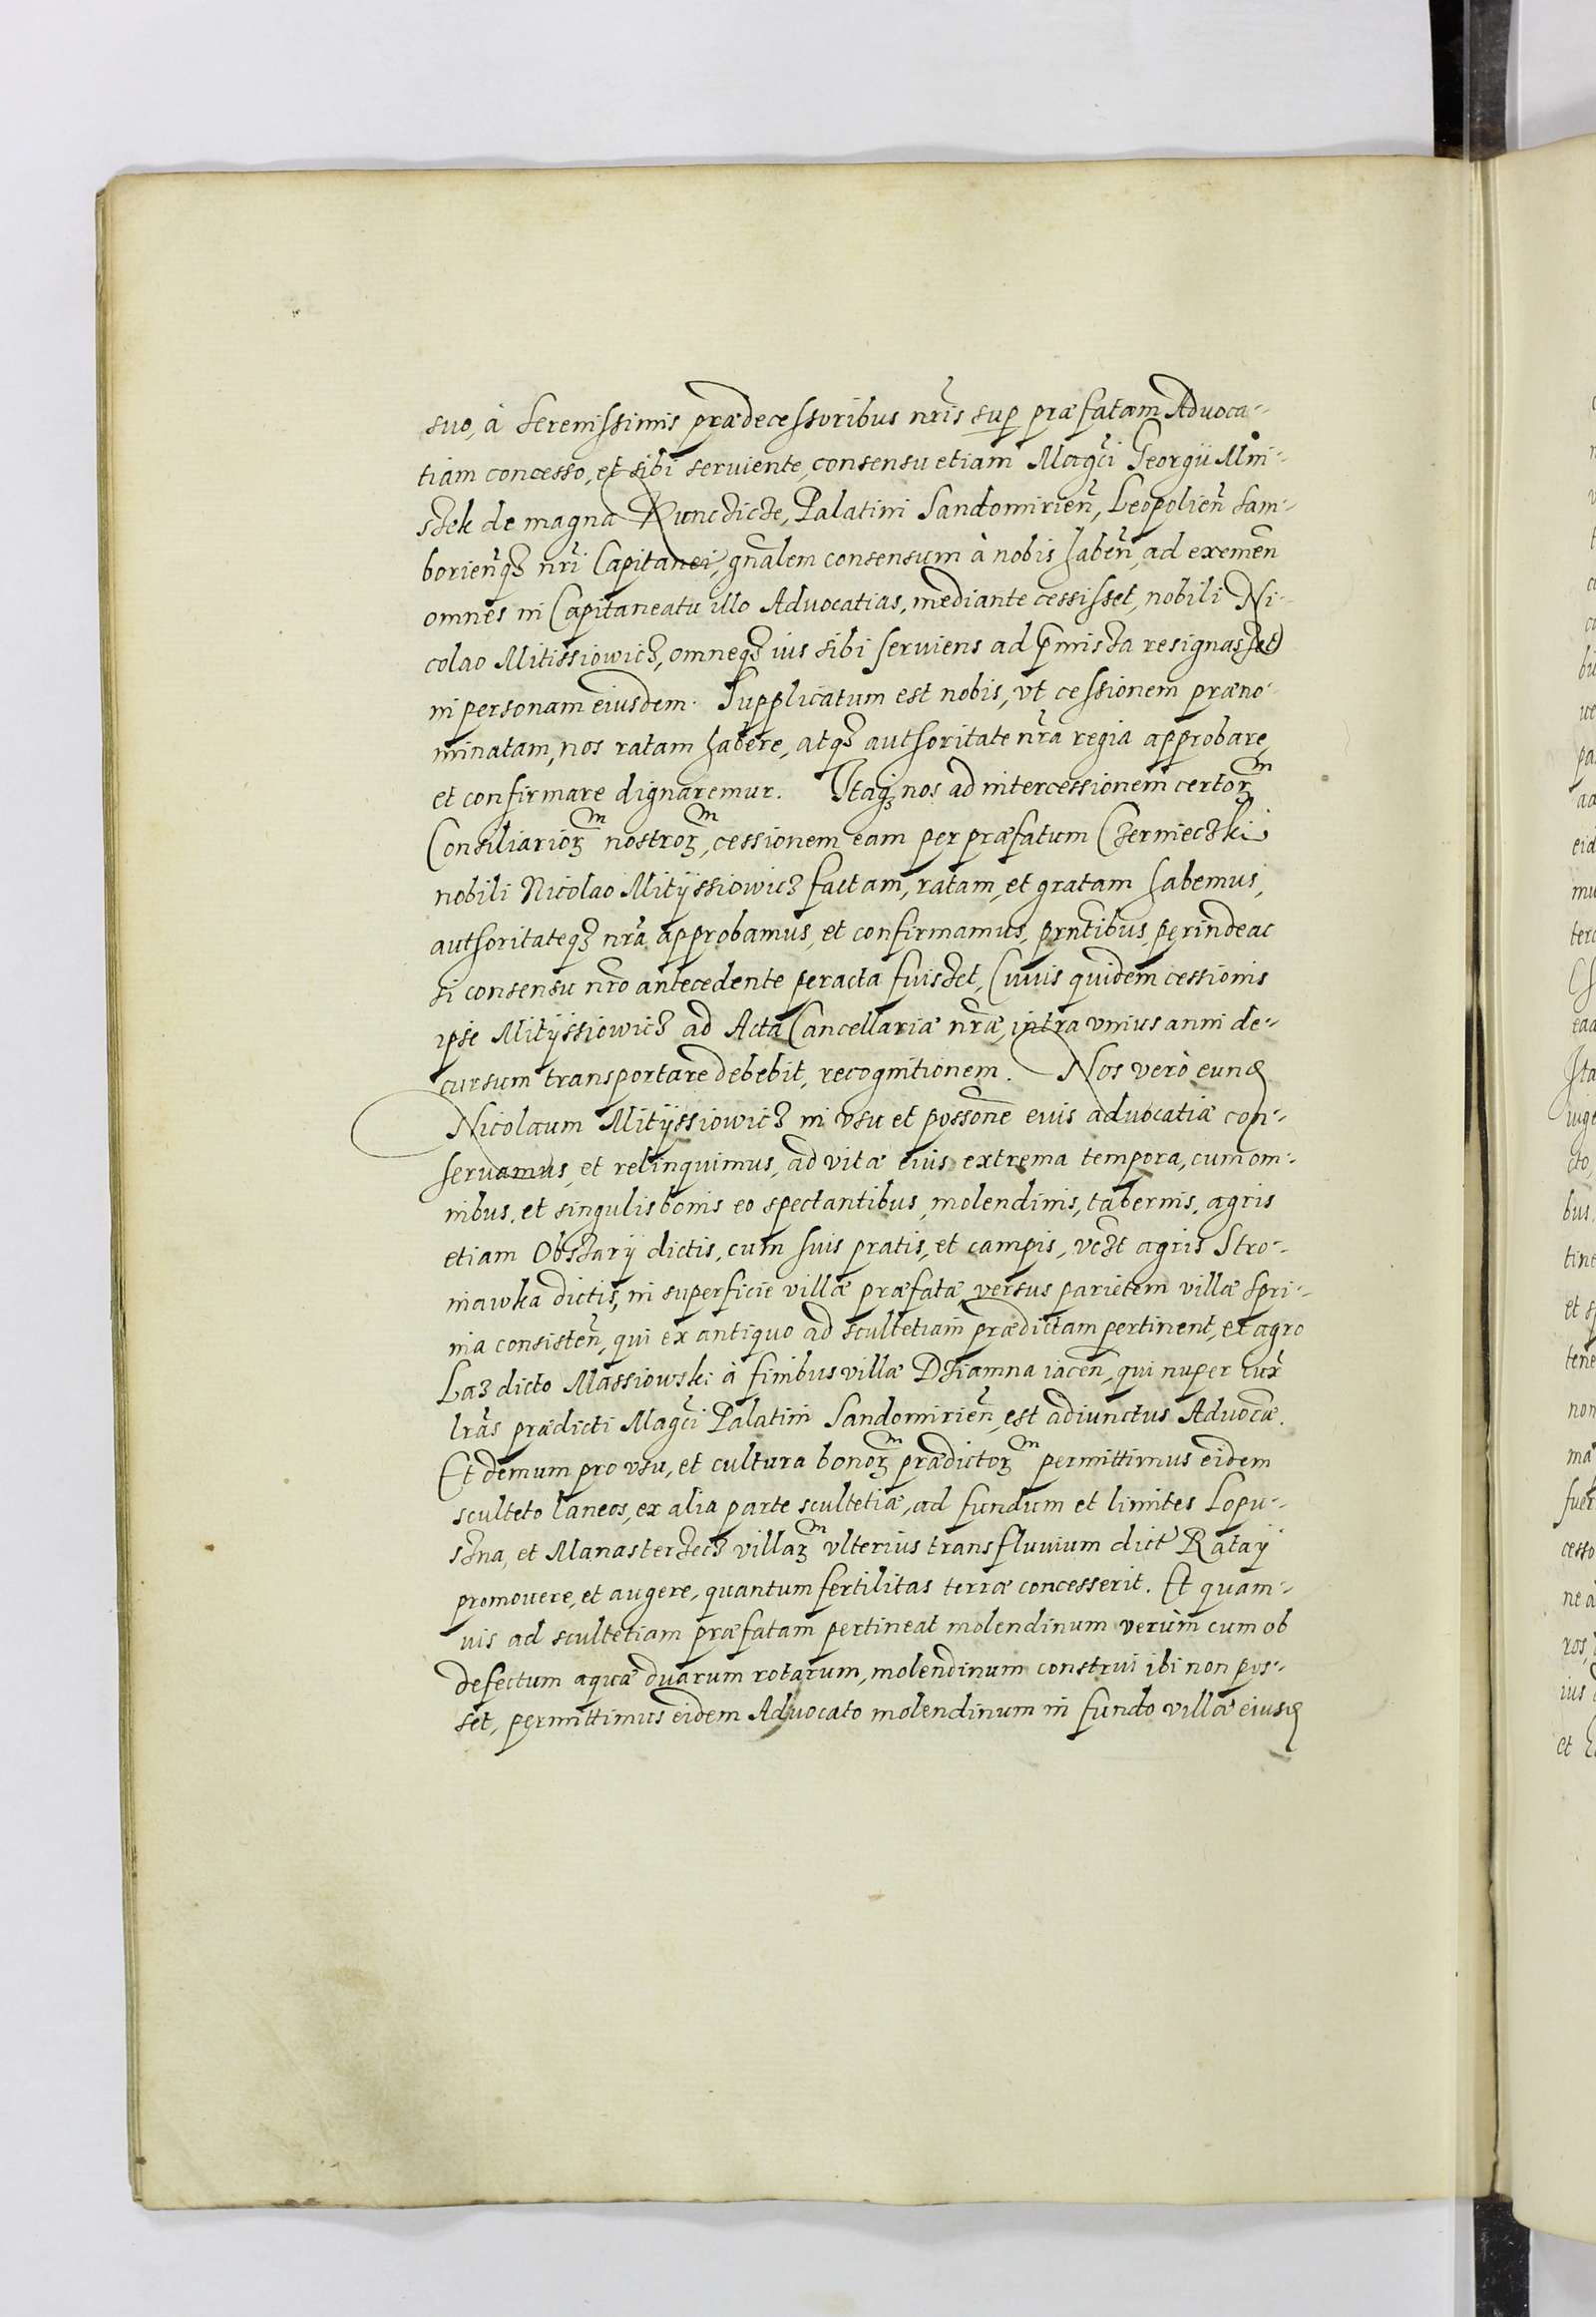 suo, à Serenissimis prædecessoribus nr̃is sup præfatam Advoca-
tiam concesso, et sibi seruiente, consensu etiam Magci Georgii Mni-
szek de magna Kunczicze, Palatini Sandomirieñ, Leopolieñ Sam-
borieñq3 nr̃i Capitanei, gñalem consensum à nobis habeñ, ad exemeñ
omnes in Capitaneatu illo Advocatias, mediante cessisset, nobili Ni-
colao Mitissiowicz, omneq3 ius sibi seruiens ad pmissa resignasset
in personam eiusdem. Supplicatum est nobis, vt cessionem præno-
minatam, nos ratam habere, atq3 authoritate nr̃a regia approbare,
et confirmare dignaremur. Itaq3 nos ad intercessionem certorm
Consiliariorm nostrorm, cessionem eam per præfatum Czernieczki
nobili Nicolao Mitÿssiowicz factam, ratam, et gratam habemus,
authoritateq3 nr̃a approbamus, et confirmamus, prñtibus, perinde ac
si consensu nr̃o antecedente peracta fuisset, Cuius quidem cessionis
ipse Mitÿssiowicz ad Acta Cancellariæ nr̃æ, intra vnius anni de-
cursum transportare debebit, recognitionem. Nos verò eund
Nicolaum Mitÿssiowicz in vsu et possone eius advocatiæ con-
seruamus, et relinquimus, ad vitæ eius extrema tempora, cum om-
nibus, et singulis bonis eo spectantibus, molendinis, tabernis, agris
etiam Obszarÿ dictis, cum suis pratis, et campis, vczt agris Stro-
niawka dictis, in superficie villæ præfatæ versus parietem villæ Spri-
nia consisteñ, qui ex antiquo ad scultetiam prædictam pertinent, et agro
Laz dicto Massiowski à finibus villæ Dziamna iaceñ, qui nuper iux̃
lr̃as prædicti Magci Palatini Sandomirieñ, est adiunctus Advocæ.
Et demum pro vsu, et cultura bonorm prædictorm permittimus eidem
sculteto laneos, ex alia parte scultetiæ, ad fundum et limites Lopu-
szna, et Manasterzecz villarm vlterius trans fluuium dict Ratay
promouere, et augere, quantum fertilitas terræ concesserit. Et quam-
uis ad scultetiam præfatam pertineat molendinum verùm cum ob
defectum aquæ duarum rotarum, molendinum construi ibi non pos-
set, permittimus eidem Advocato molendinum in fundo villæ eiusd